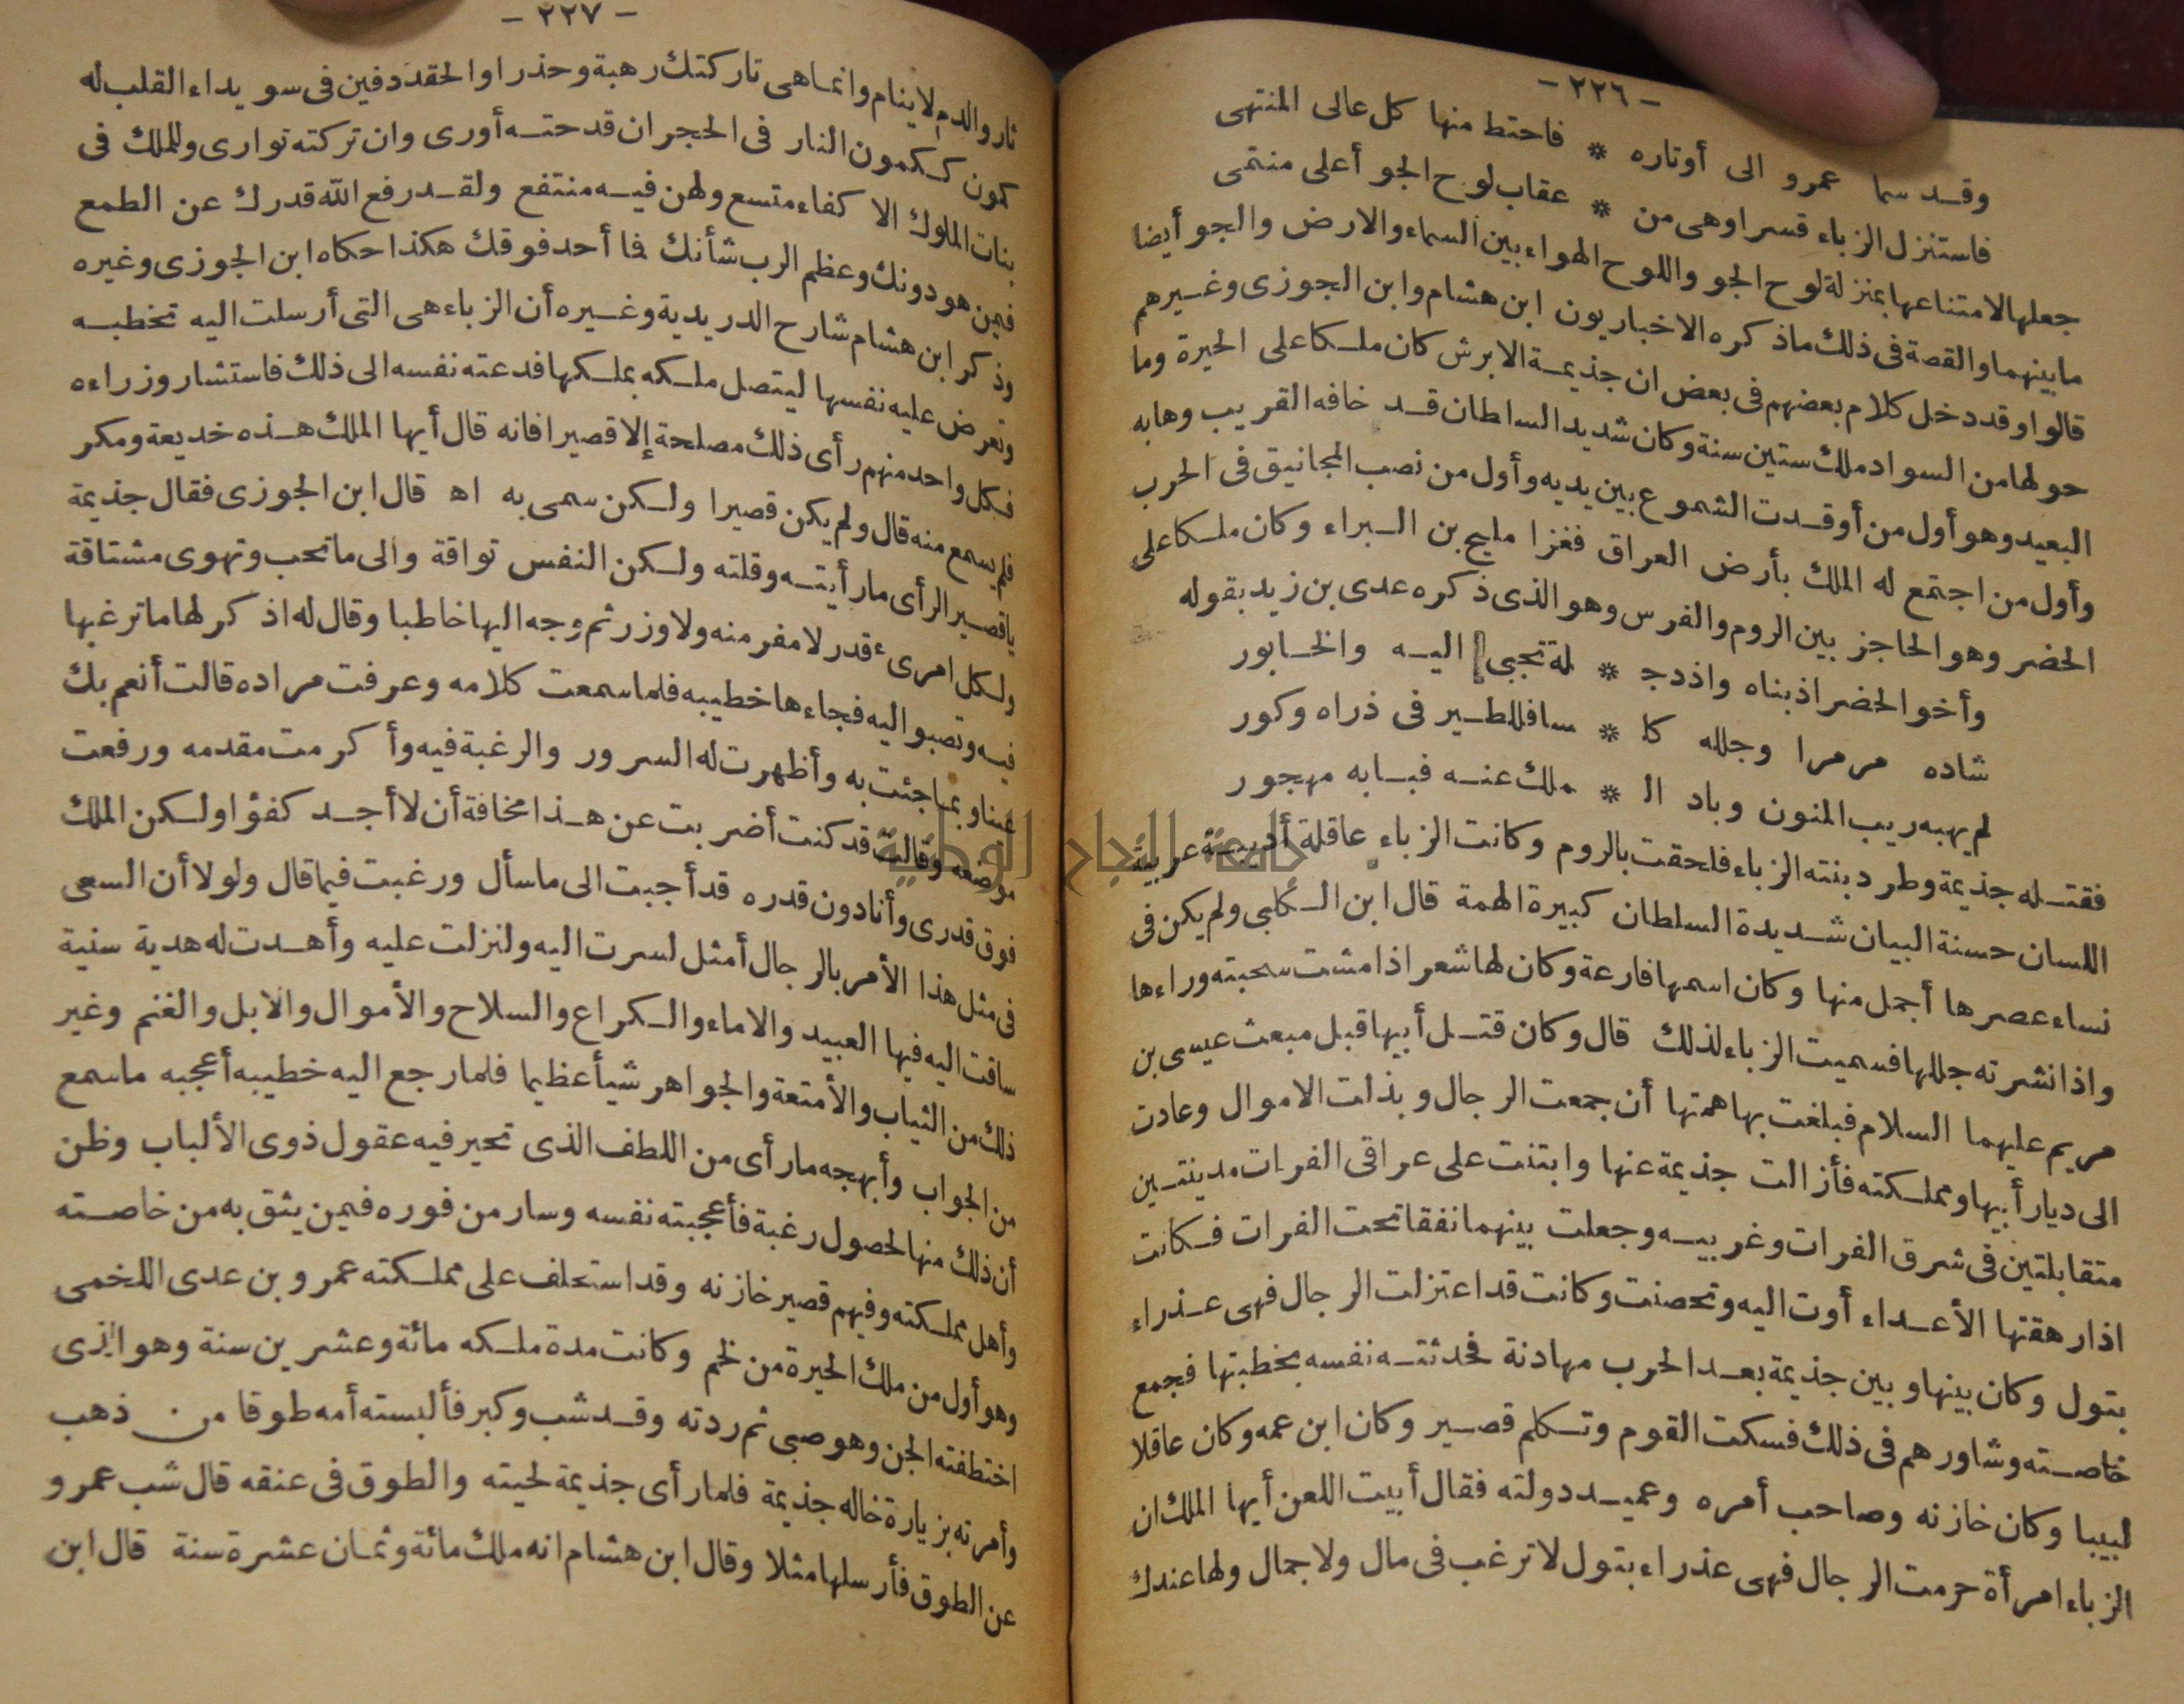 - ٢٢٦ -
وقد سما عمرو الى أوتاره * فاحتط منها كل عالى المنتهى
فاستنزل الزباء قسرا وهى من * عقاب لوح الجو أعلى منتمى
جعلها لامتناعها بمنزلة لوح الجو واللوح الهواء بين السماء والارض والجو أيضا
ما بينهما والقصة فى ذلك ما ذكره الاخباريون ابن هشام وابن الجوزى وغيرهم
قالوا وقد دخل كلام بعضهم فى بعض ان جذيمة الابرش كان ملكا على الحيرة وما
حولها من السواد ملك ستين سنة وكان شديد السلطان قد خافه القريب وهابه
البعيد وهو أول من أوقدت الشموع بين يديه وأول من نصب المجانيق فى الحرب
وأول من اجتمع له الملك بأرض العراق فغزا مليح بن البراء وكان ملكا على
الحضر وهو الحاجز بين الروم والفرس وهو الذى ذكره عدى بن زيد بقوله
وأخو الحضر اذ بناه واذ دج * لة تجبى اليه والخابور
شاده مرمرا وجلله كا * سا فللطير فى ذراه وكور
لم يهبه ريب المنون وباد ال * ملك عنه فبابه مهجور
فقتله جذيمة وطرد بنته الزباء فلحقت بالروم وكانت الزباء عاقلة أديبة عربية
اللسان حسنة البيان شديدة السلطان كبيرة الهمة قال ابن الكلبى ولم يكن فى
نساء عصرها أجمل منها وكان اسمها فارعة وكان لها شعر اذا مشت سحبته وراءها
واذا نشرته جللها فسميت الزباء لذلك قال وكان قتل أبيها قبل مبعث عيسى بن
مريم عليهما السلام فبلغت بها همتها أن جمعت الرجال وبذلت الاموال وعادت
الى ديار أبيها ومملكته فأزالت جذيمة عنها وابتنت على عراقى الفرات مدينتين
متقابلتين فى شرق الفرات وغربيه وجعلت بينهما نفقا تحت الفرات فكانت
اذا رهقتها الأعداء أوت اليه وتحصنت وكانت قد اعتزلت الرجال فهى عذراء
بتول وكان بينها وبين جذيمة بعد الحرب مهادنة فحدثته نفسه بخطبتها فجمع
خاصته وشاورهم فى ذلك فسكت القوم وتكلم قصير وكان ابن عمه وكان عاقلا
لبيبا وكان خازنه وصاحب أمره وعميد دولته فقال أبيت اللعن أيها الملك ان
الزباء امرأة حرمت الرجال فهى عذراء بتول لا ترغب فى مال ولا جمال ولها عندك
- ٢٢٧ -
ثار والدم لا ينام وانما هى تاركتك رهبة وحذرا والحقد دفين فى سويداء القلب له
كمون ككمون النار فى الحجر ان قدحته أورى وان تركته توارى وللملك فى
بنات الملوك الا كفاء متسع ولهن فيه منتفع ولقد رفع الله قدرك عن الطمع
فيمن هو دونك وعظم الرب شأنك فما أحد فوقك هكذا حكاه ابن الجوزى وغيره
وذكر ابن هشام شارح الدريدية وغيره أن الزباء هى التى أرسلت اليه تخطبه
وتعرض عليه نفسها ليتصل ملكه بملكها فدعته نفسه الى ذلك فاستشار وزراءه
فكل واحد منهم رأى ذلك مصلحة إلا قصيرا فانه قال أيها الملك هذه خديعة ومكر
فلم يسمع منه قال ولم يكن قصيرا ولكن سمى به اه قال ابن الجوزى فقال جذيمة
ياقصير الرأى ما رأيته وقلته ولكن النفس تواقة والى ما تحب وتهوى مشتاقة
ولكل امرىء قدر لا مفر منه ولا وزر ثم وجه اليها خاطبا وقال له اذكر لها ما ترغبها
فيه وتصبو اليه فجاءها خطيبه فلما سمعت كلامه وعرفت مراده قالت أنعم بك
عينا وبما جئت به وأظهرت له السرور والرغبة فيه وأكرمت مقدمه ورفعت
موضعه وقالت قد كنت أضربت عن هذا مخافة أن لا أجد كفؤا ولكن الملك
فوق قدرى وأنا دون قدره قد أجبت الى ما سأل ورغبت فيما قال ولولا أن السعى
فى مثل هذا الأمر بالرجال أمثل لسرت اليه ولنزلت عليه وأهدت له هدية سنية
ساقت اليه فيها العبيد والاماء والكراع والسلاح والأموال والابل والغنم وغير
ذلك من الثياب والأمتعة والجواهر شيأ عظيما فلما رجع اليه خطيبه أعجبه ما سمع
من الجواب وأبهجه ما رأى من اللطف الذى تحير فيه عقول ذوى الألباب وظن
أن ذلك منها لحصول رغبة فأعجبته نفسه وسار من فوره فيمن يثق به من خاصته
وأهل مملكته وفيهم قصير خازنه وقد استخلف على مملكته عمرو بن عدى اللخمى
وهو أول من ملك الحيرة من لخم وكانت مدة ملكه مائة وعشرين سنة وهو الذى
اختطفته الجن وهو صبى ثم ردته وقد شب وكبر فألبسته أمه طوقا من ذهب
وأمرته بزيارة خاله جذيمة فلما رأى جذيمة لحيته والطوق فى عنقه قال شب عمرو
عن الطوق فأرسلها مثلا وقال ابن هشام انه ملك مائة وثمان عشرة سنة قال ابن
جامعة النجاح الوطنية